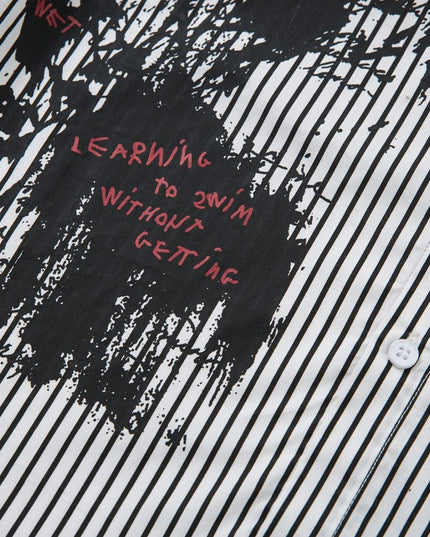 WET
LEARNING
to 2WIM
WITHOUT
GETTING